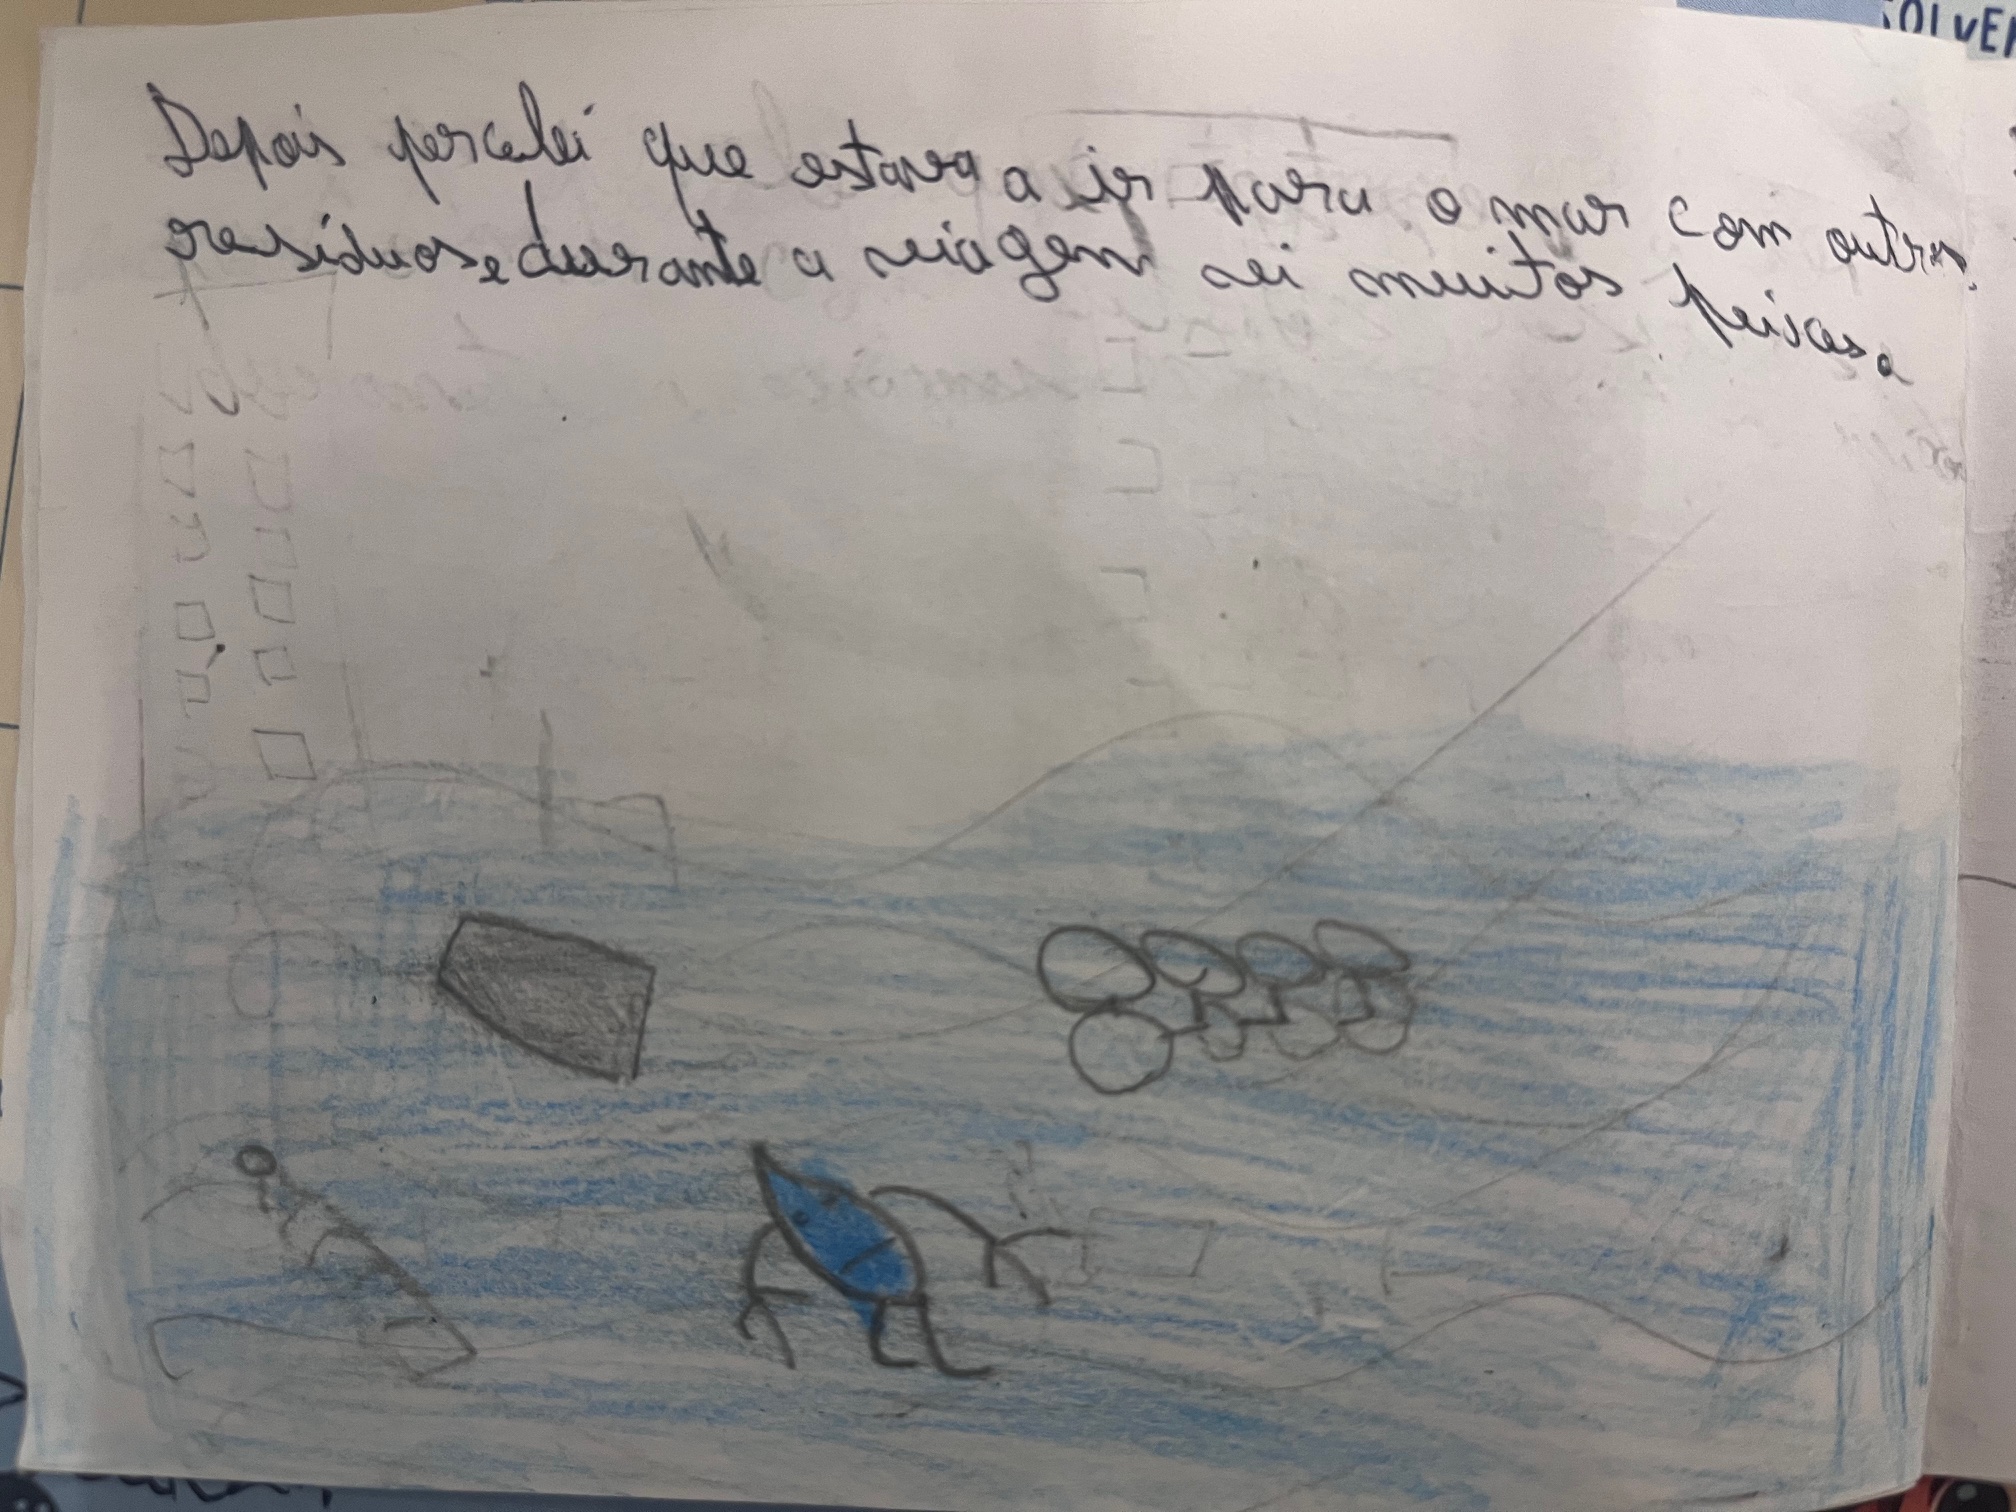 SOLVE
Depois percebi que estava a ir para o mar com outros
resíduos, e durante a viagem vi muitos peixes.